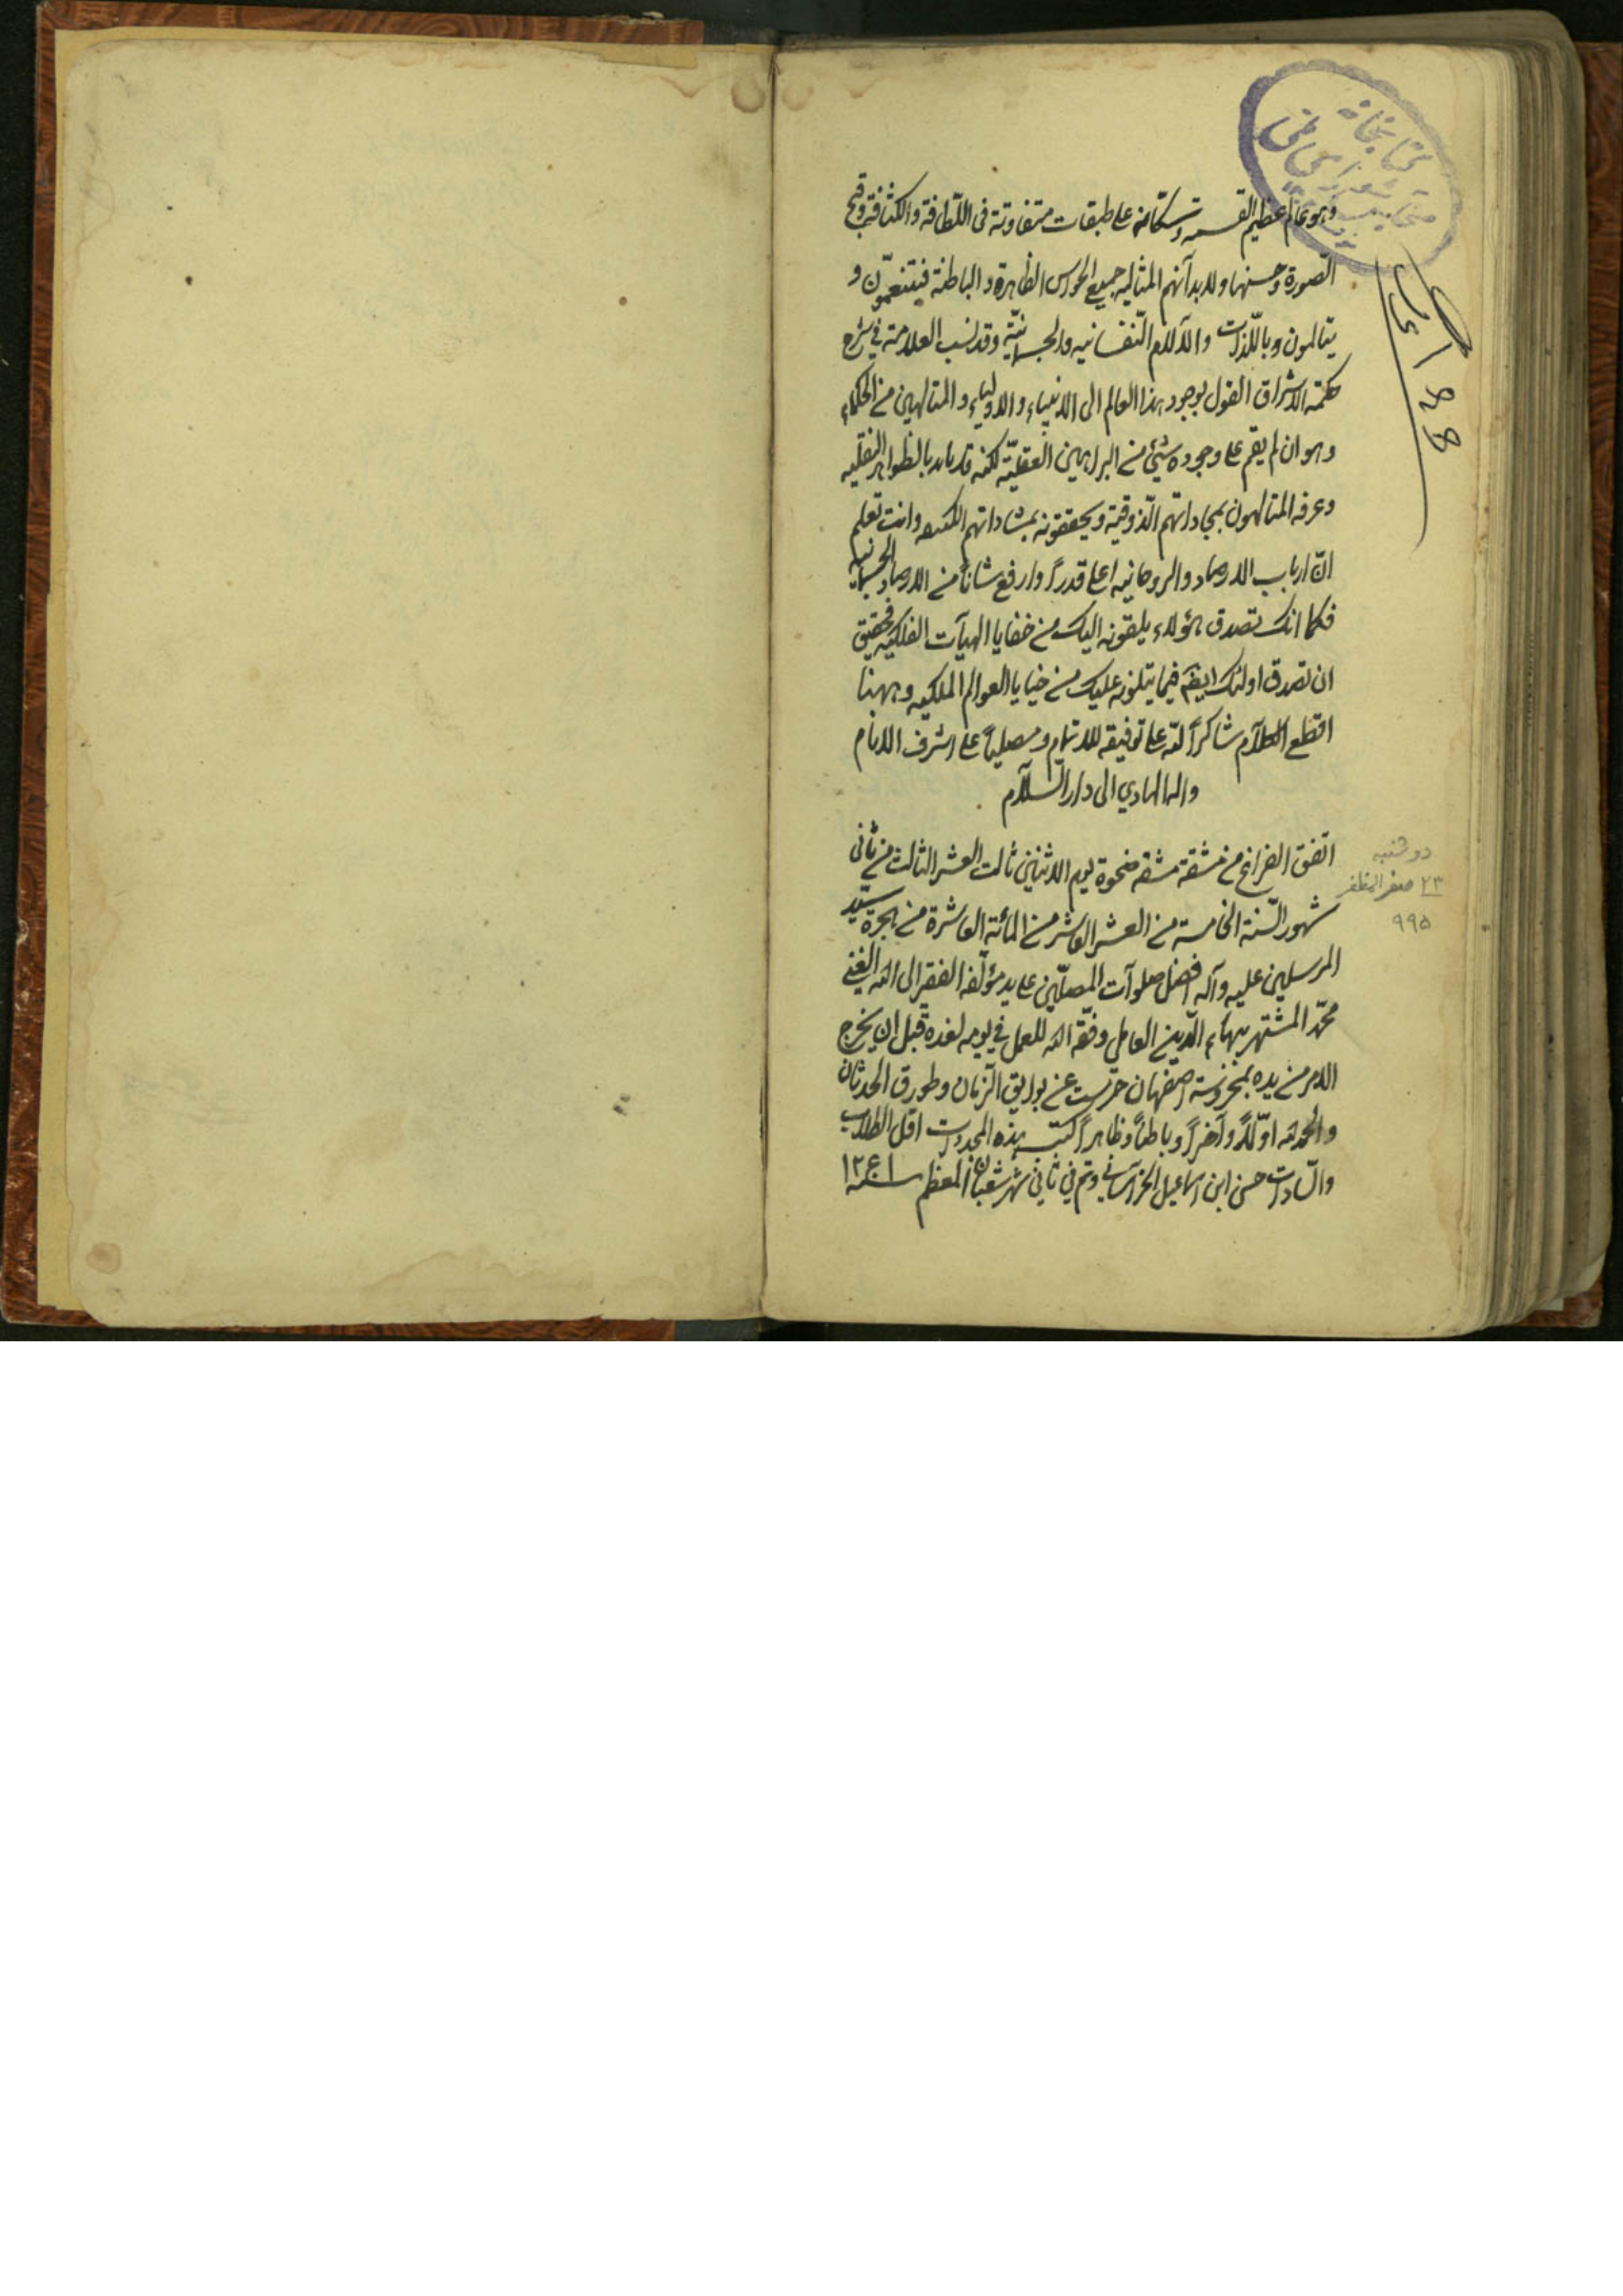 وهو عالم عظيم القسمة وسكانه على طبقات متفاوتة فى اللّطافة والكثافة وقبح
الصورة وحسنها ولابدآنهم المثاليه جميع الحواس الظاهرة والباطنة فيتنعمّون و
يتالمون وباللّذات والآلام النّفسانيه والجسمانيّة وقد نسب العلامة في شرح
حكمة الاشراق القول بوجود هذا العالم الى الانبياء والاولياء والمتالهين من الحكماء
وهو ان لم يقم على وجوده شئ من البراهين العقليّة لكنه قد تايد بالظواهر النقليه
وعرفه المتالهون بمجاداتهم الذوقية ويحققونه بمشاداتهم الكشفيه وانت تعلم
انّ ارباب الارصاد والروحانيه اعلى قدراً وارفع شاناً من الارصاد الجسمانيه
فكما انك تصدق هؤلاء يلقونه اليك من خفايا الهيآت الفلكيه فحقيق
ان تصدق اولئك ايضًا فيما يتلونه عليك من خبايا العوالم الملكيه وههنا
اقطع الكلآم شاكراً لله على توفيقه للاتمام ومصلياً على اشرف الانام
والله الهادي الى دار السّلآم
اتفق الفراغ من مشقة مشقه ضحوة يوم الاثنين ثالث العشر الثالث من ثاني
شهور السّنة الخامسة من العشر العاشر من المائة العاشرة من هجرة سيّد
المرسلين عليه وآله افضل صلوآت المصلّين على يد مؤلّفه الفقير الى الله الغني
محمّد المشتهر ببهاء الدّين العاملى وفّقه الله للعمل في يومه لغده قبل ان يخرج
الامر من يده بمحروسة اصفهان حرّست عن بوايق الزّمان وطورق الحدثان
والحمد لله اوّلاً وآخراً وباطناً وظاهراً كتب هذه المجدورات اقل الطّلاب
والسّادات حسن ابن اسماعيل الخراساني وتم في ثاني شهر شعبان المعظم سنة ١٢٤١
دوشنبه
٢٣ صفر المظفر
٩٩۵
كتابخانه